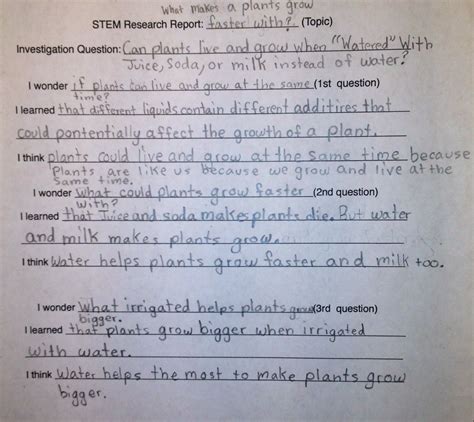 What makes a plants grow
STEM Research Report: faster with? (Topic)
Investigation Question: Can plants live and grow when "Watered" With
Juice, Soda, or milk instead of water?
I wonder if plants can live and grow at the same (1st question)
time?
I learned that different liquids contain different additires that
could pontentially affect the growth of a plant.
I think plants could live and grow at the same time because
Plants are like us because we grow and live at the
same time.
I wonder what could plants grow faster (2nd question)
With?
I learned that Juice and soda makes plants die. But water
and milk makes plants grow.
I think Water helps plants grow faster and milk too.
I wonder What irrigated helps plants grow (3rd question)
bigger.
I learned that plants grow bigger when irrigated
with water.
I think Water helps the most to make plants grow
bigger.